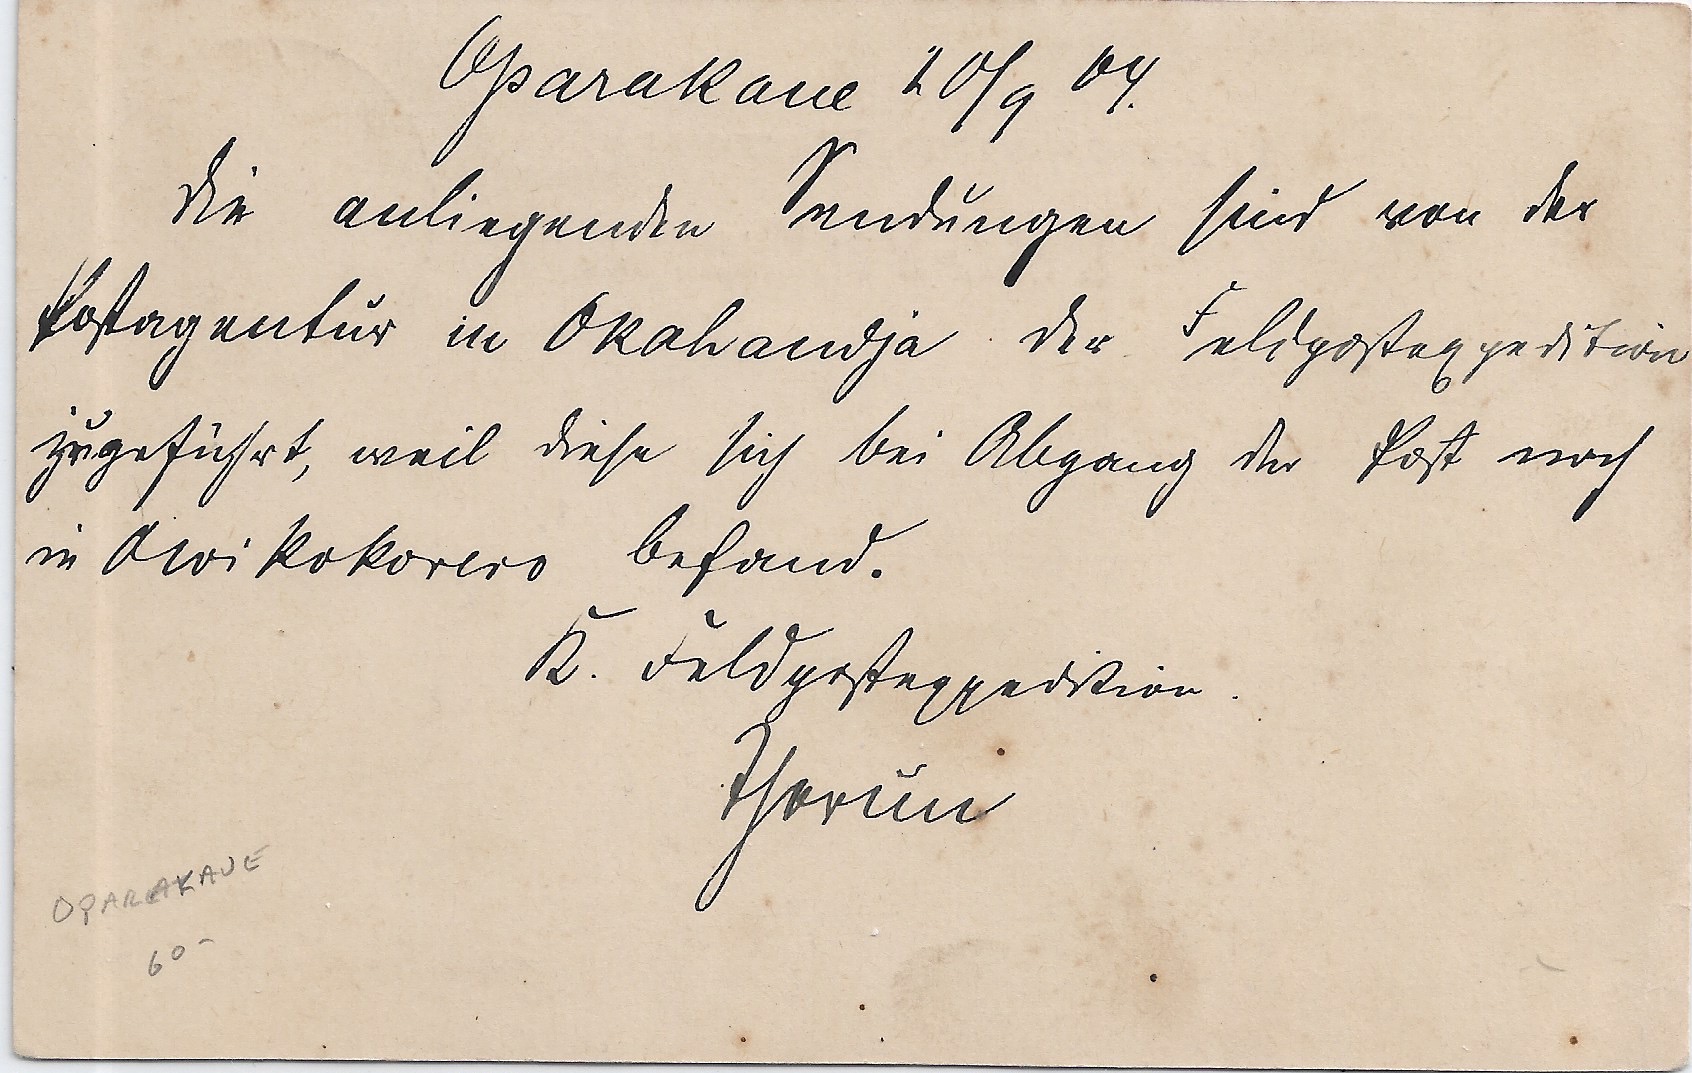 Oparakane 20/9 04.
Die anliegenden Sendungen sind von der
Postagentur in Okahandja der Feldpostexpedition
zugeführt, weil diese sich bei Abgang der Post noch
in Owikokorero befand.
K. Feldpostexpedition.
Thorun
OPARAKAUE
60-